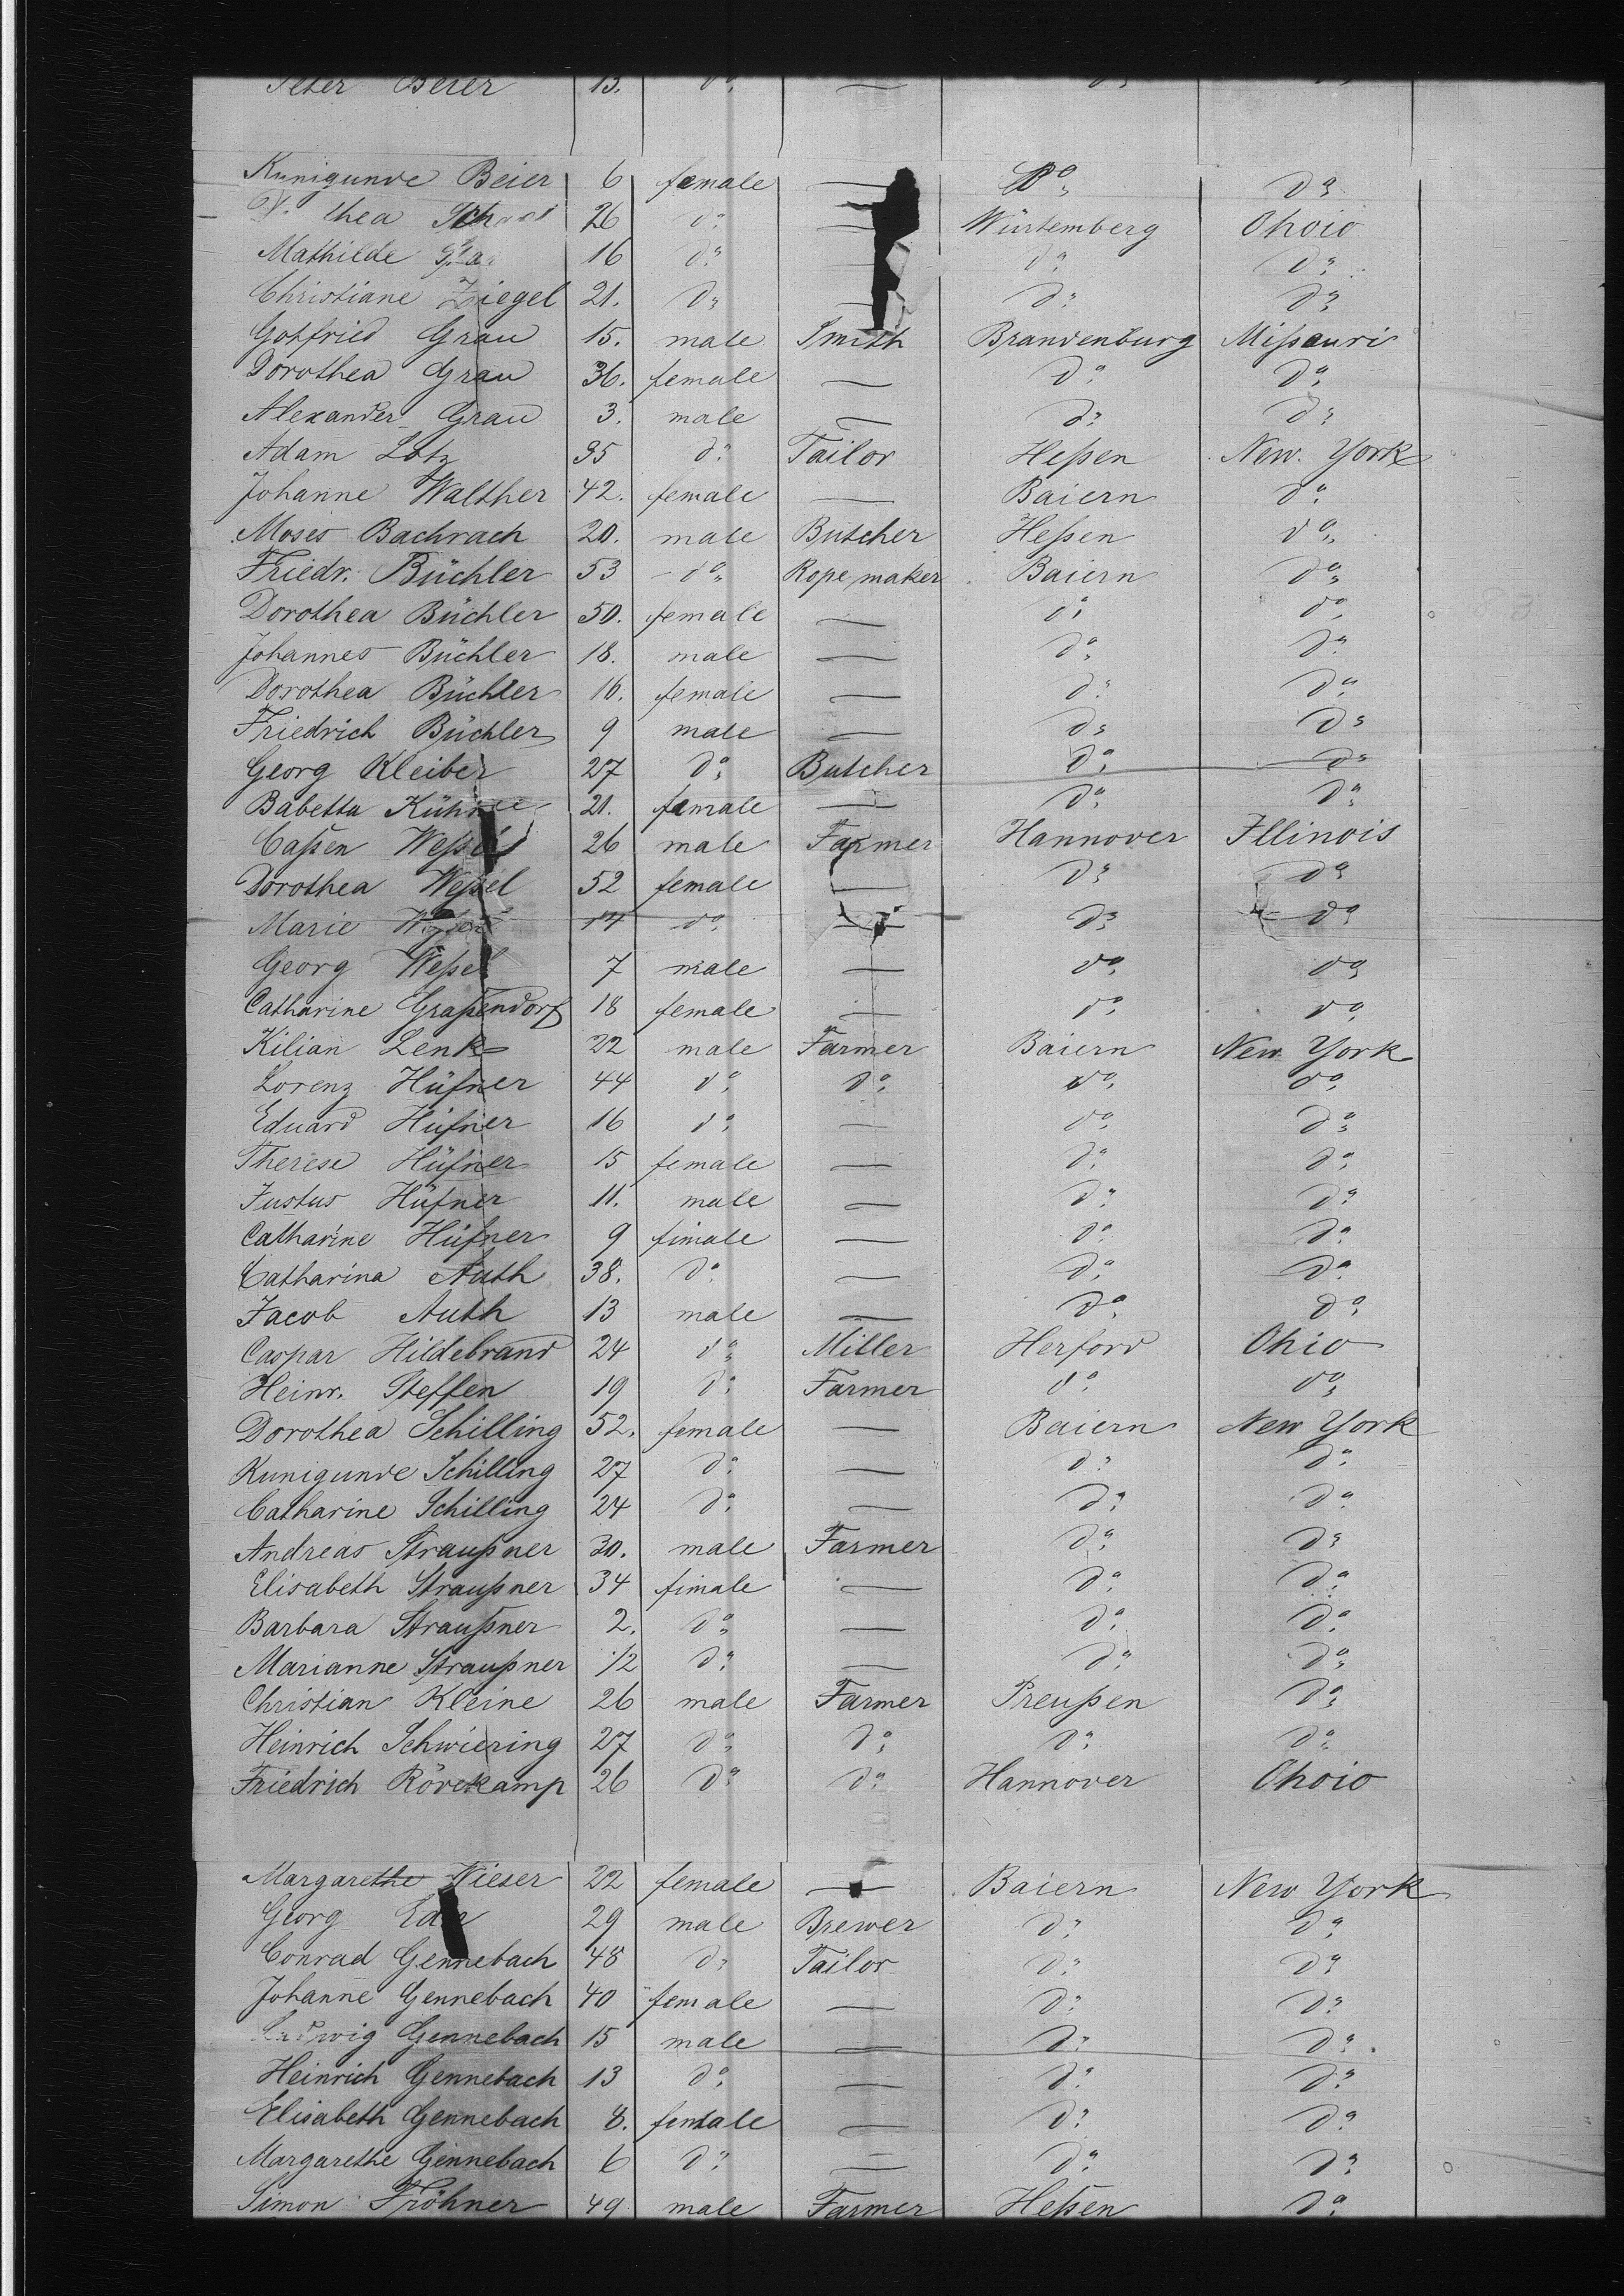 Peter Beier 13. do —
Kunigunde Beier 6 female — Do do
thea 26 do — Würtemberg Ohoio
Mathilde 16 do — do do
Christiane Ziegel 21. do — do do
Gotfried Grau 15. male Smith Brandenburg Missauri
Dorothea Grau 36. female — do do
Alexander Grau 3. male — do do
Adam Lotz 35 do Tailor Hessen New. York
Johanne Walther 42. female — Baiern do
Moses Bachrach 20. male Butcher Hessen do
Friedr. Büchler 53 do Rope maker Baiern do
Dorothea Büchler 50. female — do do
Johannes Büchler 18. male — do do
Dorothea Büchler 16. female — do do
Friedrich Büchler 9 male — do do
Georg Kleiber 27 do Butcher do do
Babetta 21. female — do do
Cassen Wessel 26 male Farmer Hannover Illinois
Dorothea Wessel 52 female — do do
Marie 14 do — do do
Georg Wessel 7 male — do do
Catharine Grassendorf 18 female — do do
Kilian Lenk 22 male Farmer Baiern New York
Lorenz Hüfner 44 do do do do
Eduard Hüfner 16 do — do do
Therese Hüfner 15 female — do do
Justus Hüfner 11. male — do do
Catharine Hüfner 9 fimale — do do
Catharina Auth 38. do — do do
Jacob Auth 13 male — do do
Caspar Hildebrand 24 do Miller Herford Ohio
Heinr. Steffen 19 do Farmer do do
Dorothea Schilling 52. female — Baiern New York
Kunigunde Schilling 27 do — do do
Catharine Schilling 24 do — do do
Andreas Straußner 30. male Farmer do do
Elisabeth Straußner 34 fimale — do do
Barbara Straußner 2. do — do do
Marianne Straußner 1/2 do — do do
Christian Kleine 26 male Farmer Preußen do
Heinrich Schwiering 27 do do do do
Friedrich Rörekamp 26 do do Hannover Ohoio
Margarethe Wieser 22 female — Baiern New York
Georg 29 male Brewer do do
Conrad Gennebach 48 do Tailor do do
Johanne Gennebach 40 female — do do
Ludwig Gennebach 15 male — do do
Heinrich Gennebach 13 do — do do
Elisabeth Gennebach 8. female — do do
Margarethe Gennebach 6 do — do do
Simon Fröhner 49 male Farmer Hessen do